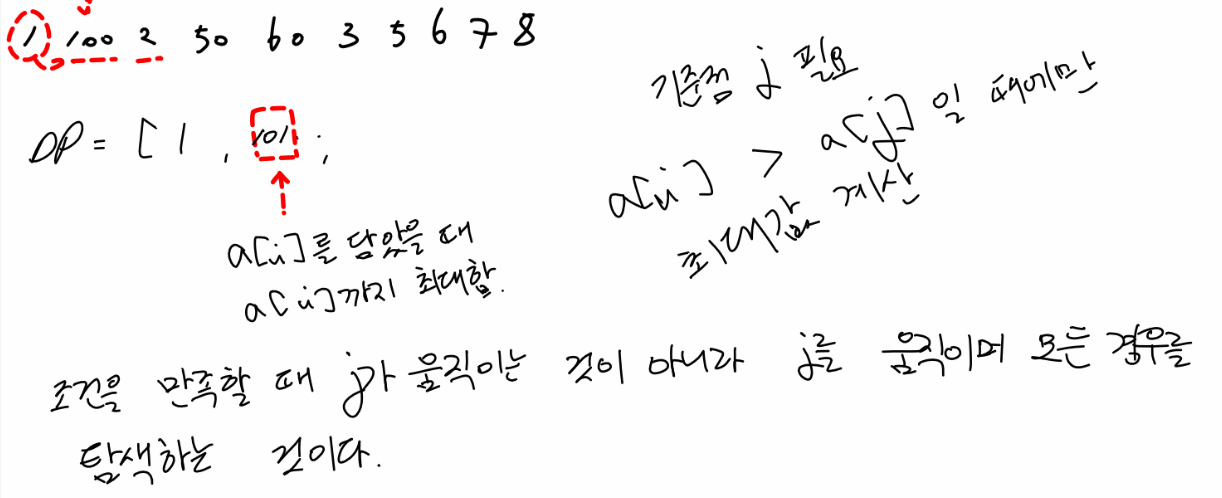 1 100 2 50 60 3 5 6 7 8
DP = [ 1 , 101 ,
a[i]를 담았을 때
a[i]까지 최대합.
기준점 j 필요
a[i] > a[j] 일 때에만
최대값 계산
조건을 만족할 때 j가 움직이는 것이 아니라 j를 움직이며 모든 경우를
탐색하는 것이다.